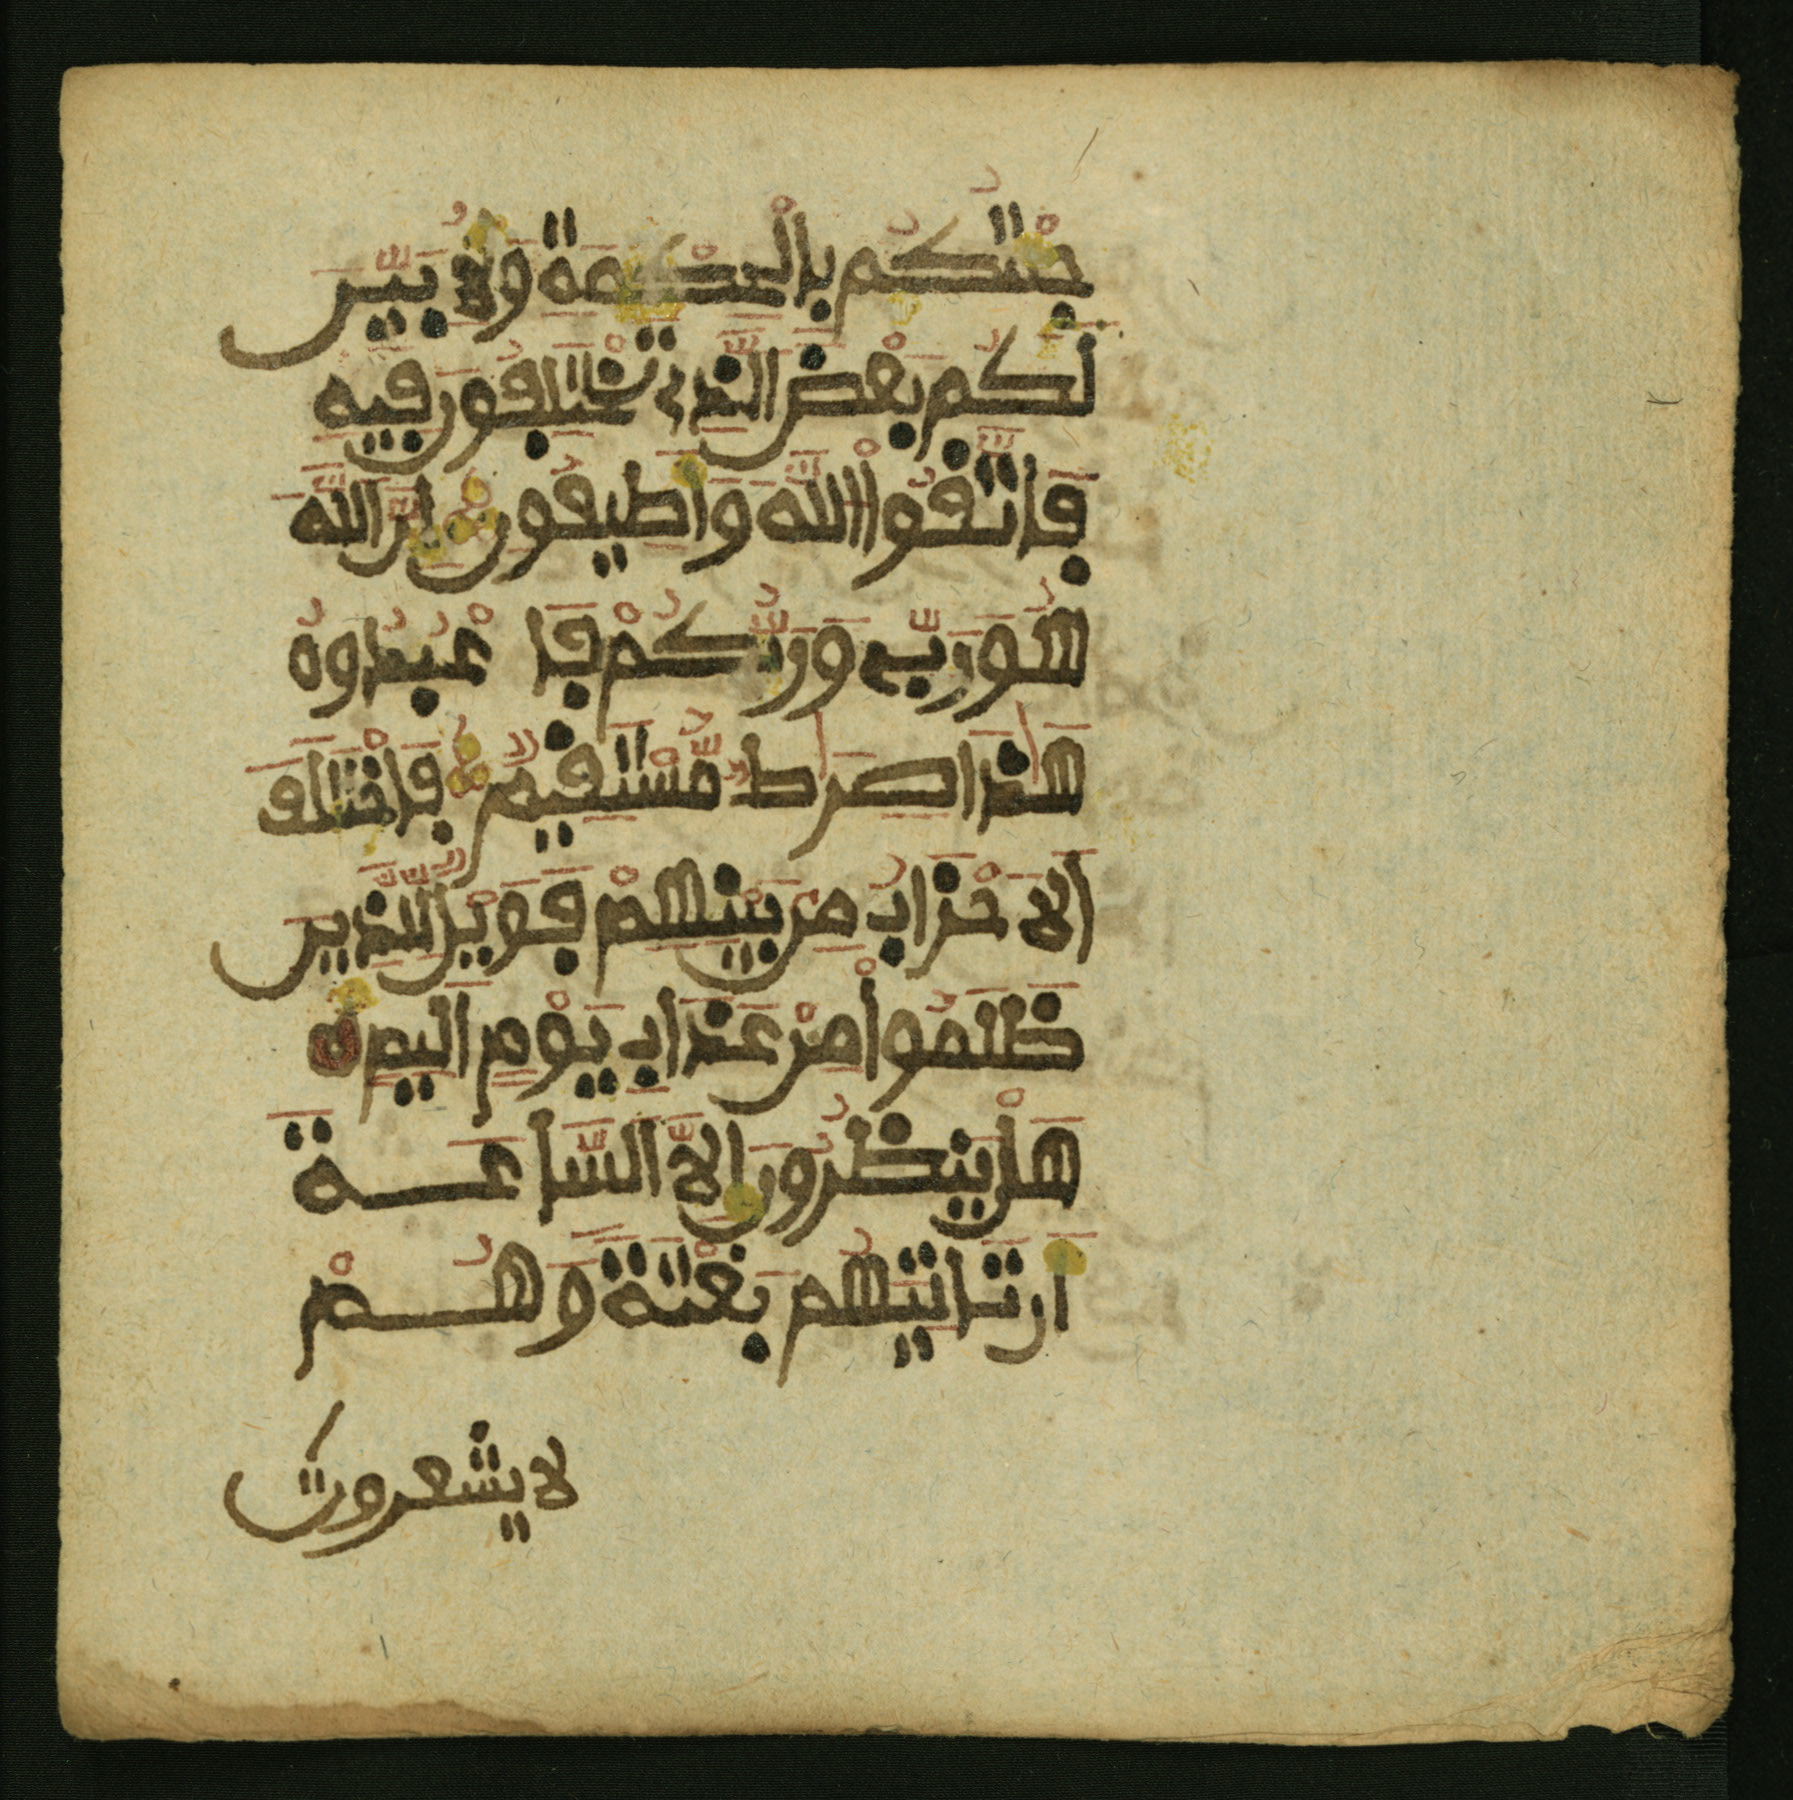 جئتكم بالحكمة ولابين
لكم بعض الذي تختلفون فيه
فاتقوا الله واطيعون ان الله
هو ربي وربكم فا عبدوه
هذا صراط مستقيم فاختلف
الاحزاب من بينهم فويل للذين
ظلموا من عذاب يوم اليم
هل ينظرون الا الساعة
ان تاتيهم بغتة وهم
لا يشعرون